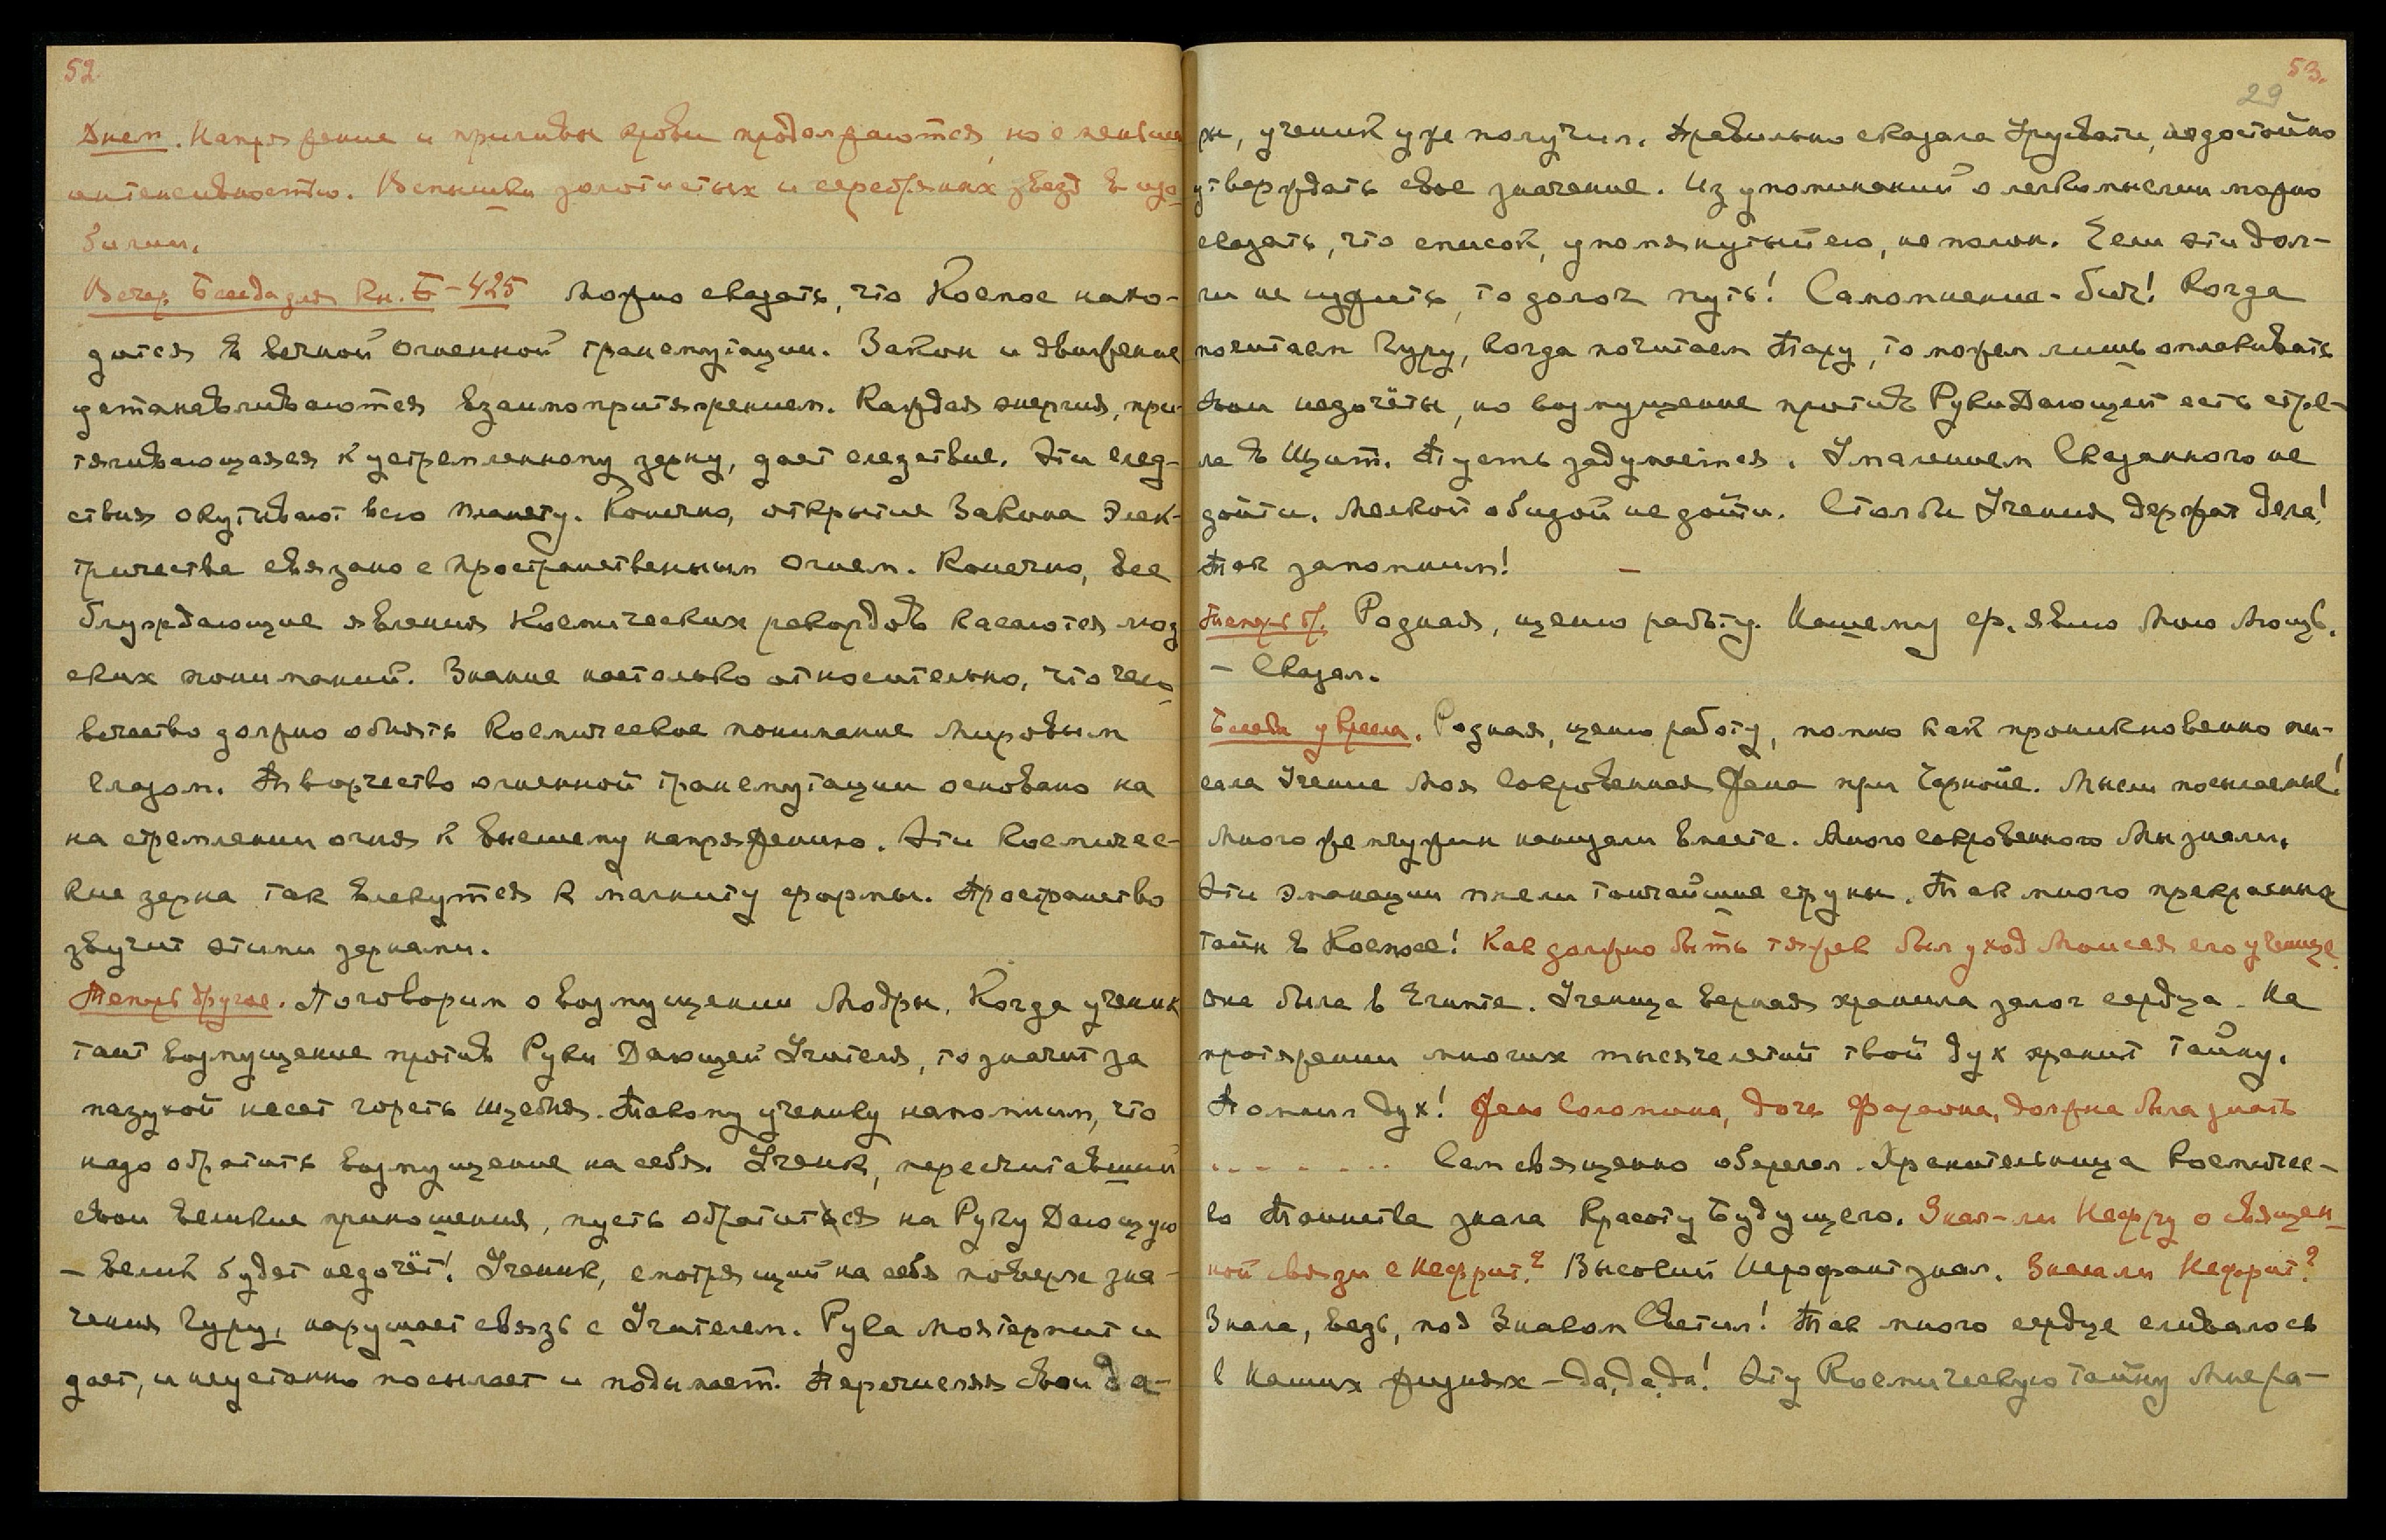 52.
Днем. Напряжение и приливы крови продолжаются, но с меньшей
интенсивностью. Вспышки золотистых и серебряных звезд в изо-
билии.
Вечер. Беседа для Кн. Б-425 Можно сказать, что Космос нахо-
дится в вечной огненной трансмутации. Закон и движение
устанавливаются взаимопритяжением. Каждая энергия, при-
тягивающаяся к устремленному зерну, дает следствие. Эти след-
ствия окутывают всю планету. Конечно, открытие Закона Элек-
тричества связано с пространственным Огнем. Конечно, все
блуждающие явления Космических рекордов касаются люд
ских пониманий. Знание настолько относительно, что чело-
вечество должно обнять Космическое понимание Мировым
Глазом. Творчество огненной трансмутации основано на
на стремлении огня к высшему напряжению. Эти Космичес-
кие зерна так влекутся к магниту формы. Пространство
звучит этими зернами.
Теперь другое. Поговорим о возмущении Модры. Когда ученик
таит возмущение против Руки Дающей Учителя, то значит за
пазухой несет горсть щебня. Такому ученику напомним, что
надо обратить возмущение на себя. Ученик, пересчитавший
свои великие приношения, пусть обратится на Руку Дающую
– велик будет недочёт! Ученик, смотрящий на себя поверх зна-
чения Гуру, нарушает связь с Учителем. Рука Моя терпит и
дает, и неустанно посылает и подымает. Перечисляя свои да-
53.
29
ры, ученик уже получил. Правильно сказала Урусвати, недостойно
утверждать свое значение. Из упоминаний о легкомыслии можно
сказать, что список, упомянутый ею, не полон. Если эти дол-
ги не изжить, то долог путь! Самомнение - бич! Когда
почитаем Гуру, когда почитаем Тару, то можем лишь оплакивать
свои недочёты, но возмущение против Руки Дающей есть стре-
ла в Щит. Пусть задумается. Умалением Сказанного не
дойти. Мелкой обидой не дойти. Столбы Учения держат дела!
Так запомним! –
Теперь др. Родная, ценю работу. Нашему ф. явлю Мою Мощь.
– Сказал.
Беседа у кресла. Родная, ценю работу, помню как проникновенно пи-
сала Учение Моя Сокровенная Жена при Черноте. Мысли посылаемые!
Много жемчужин нанизали вместе. Много сокровенного Мы знали.
Эти эманации ткали тончайшие струны. Так много прекрасных
тайн в Космосе! Как должно быть тяжек был уход Моисея его ученице.
Она была в Египте. Ученица верная хранила залог сердца. На
протяжении многих тысячелетий твой дух хранит тайну.
Помнил дух! Жена Соломона, дочь Фараона, должна была знать
........ Сам священно оберегал. Хранительница Космичес-
ко Таинства знала Красоту Будущего. Знал-ли Нефру о священ-
ной связи с Нефрит? Высокий Иерофант знал. Знала ли Нефрит?
Знала, ведь, под Знаком Светил! Так много сердце сливалось
в Наших жизнях - да, да, да! Эту Космическую тайну